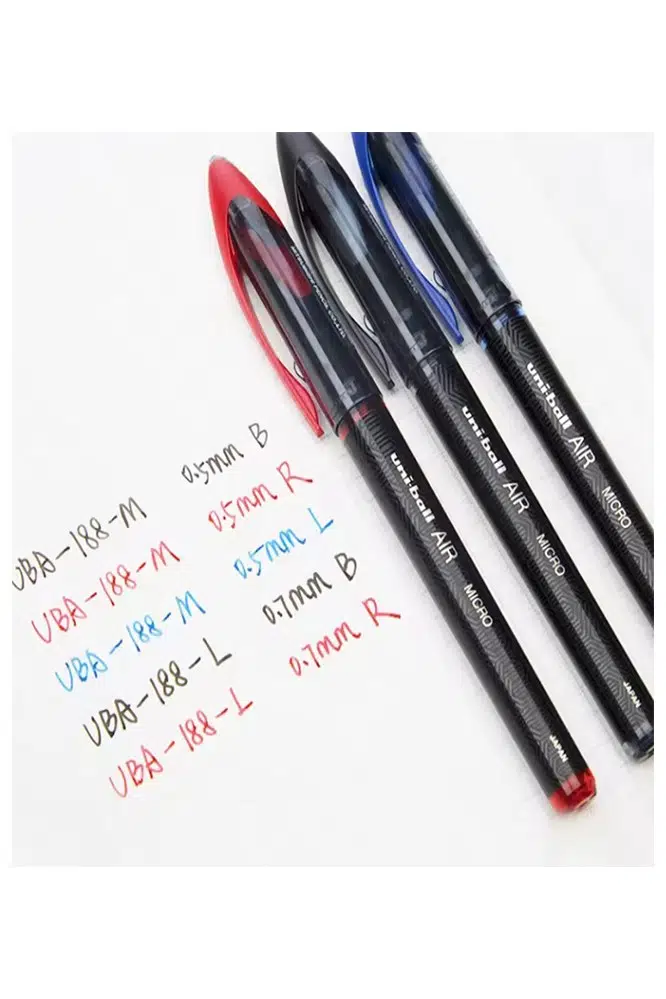 UBA-188-M 0.5mm B
UBA-188-M 0.5mm R
UBA-188-M 0.5mm L
UBA-188-L 0.7mm B
UBA-188-L 0.7mm R
uni-ball AIR MICRO
JAPAN
uni-ball AIR MICRO
JAPAN
uni-ball AIR MICRO